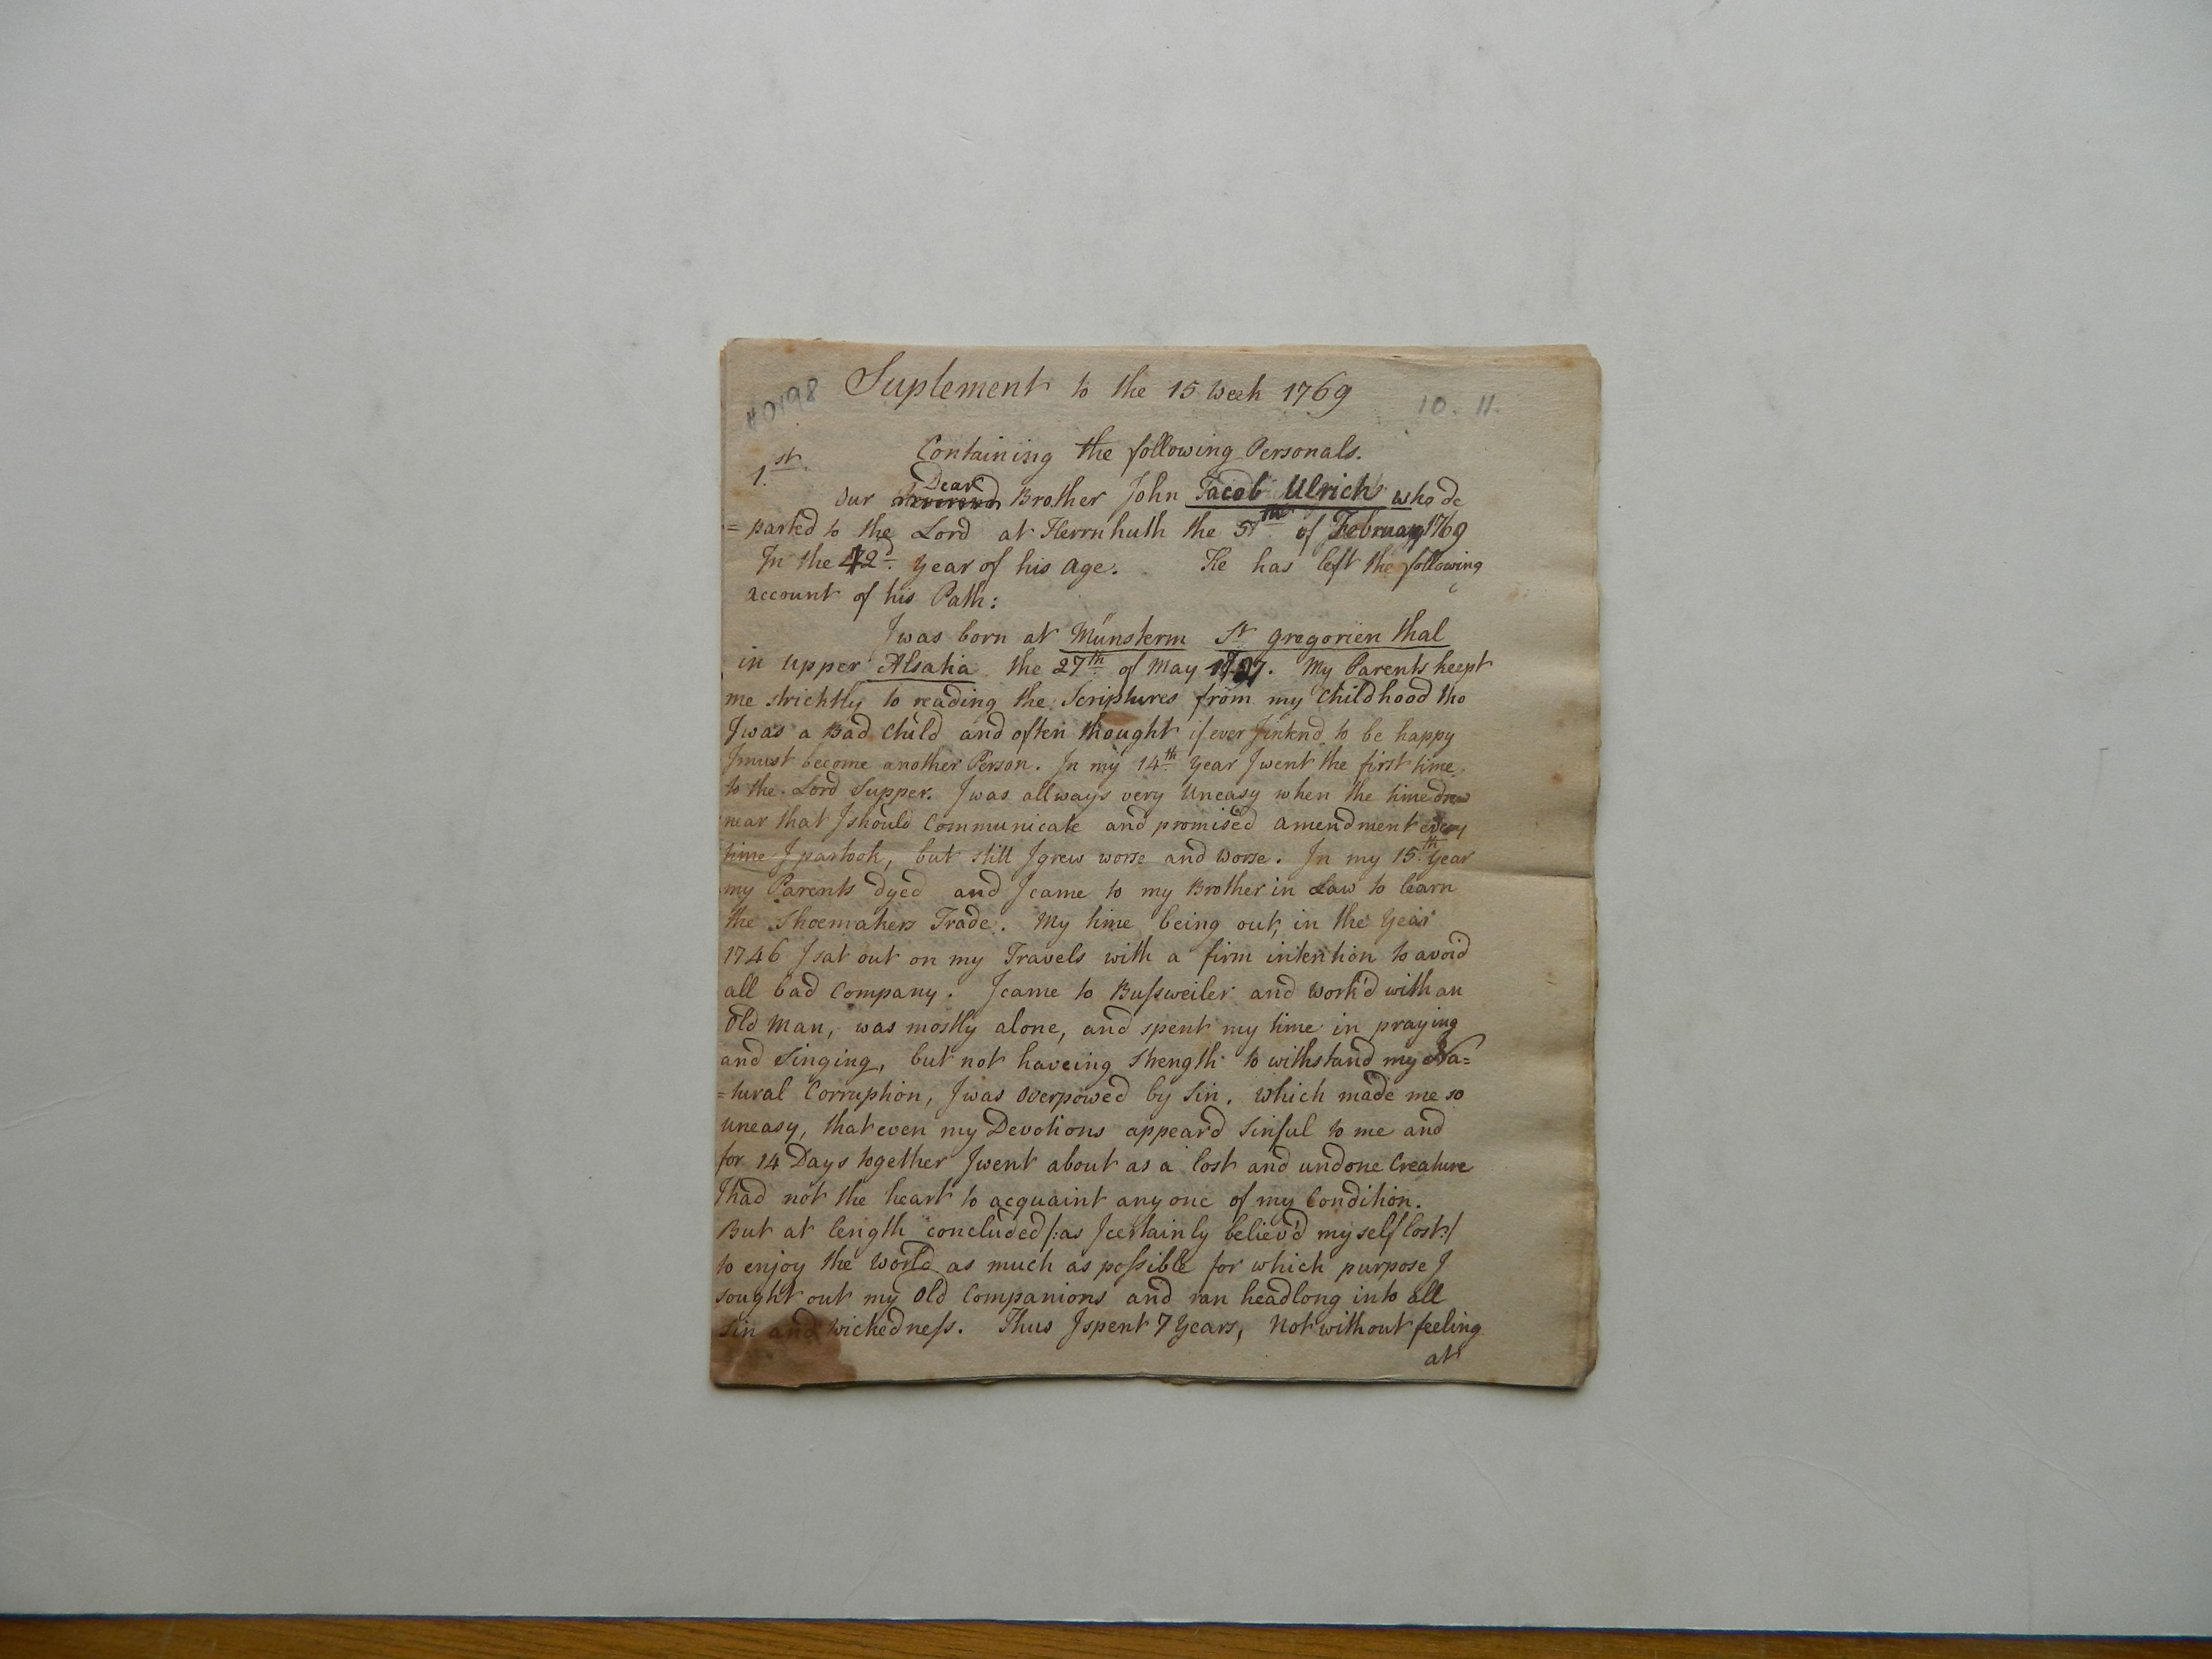 #0198
Suplement to the 15 week 1769
10. 11.
Containing the following Personals.
1.st
Dear
Our Brother John Jacob Ulrich who de
= parted to the Lord at Herrnhuth the 5th of February 1769
In the 42d. year of his age. He has left the following
account of his Path:
I was born at Münsterm St gregorien thal
in upper Alsatia the 27th of May My Parents keept
me strichtly to reading the Scriptures from my Childhood tho
I was a Bad Child and often thought if ever I intend to be happy
I must become another Person. In my 14th year I went the first time
to the Lord Supper. I was allways very Uneasy when the time drew
near that I should Communicate and promised amendment every
time I partook, but still I grew worse and worse. In my 15th year
my Parents dyed and I came to my Brother in Law to learn
the Shoemakers Trade. My time being out, in the Year
1746 I sat out on my Travels with a firm intention to avoid
all bad Company. I came to Bussweiler and work'd with an
Old Man, was mostly alone, and spent my time in praying
and Singing, but not haveing Strength to withstand my Na=
=tural Corruption, I was Overpowed by Sin, which made me so
uneasy, that even my Devotions appear'd Sinful to me and
for 14 Days together I went about as a lost and undone Creature
I had not the heart to acquaint any one of my Condition.
But at length concluded /:as I certainly believ'd myself lost:/
to enjoy the World as much as possible for which purpose I
sought out my Old Companions and ran headlong into all
Sin and wickedness. Thus I spent 7 Years, Not without feeling
at